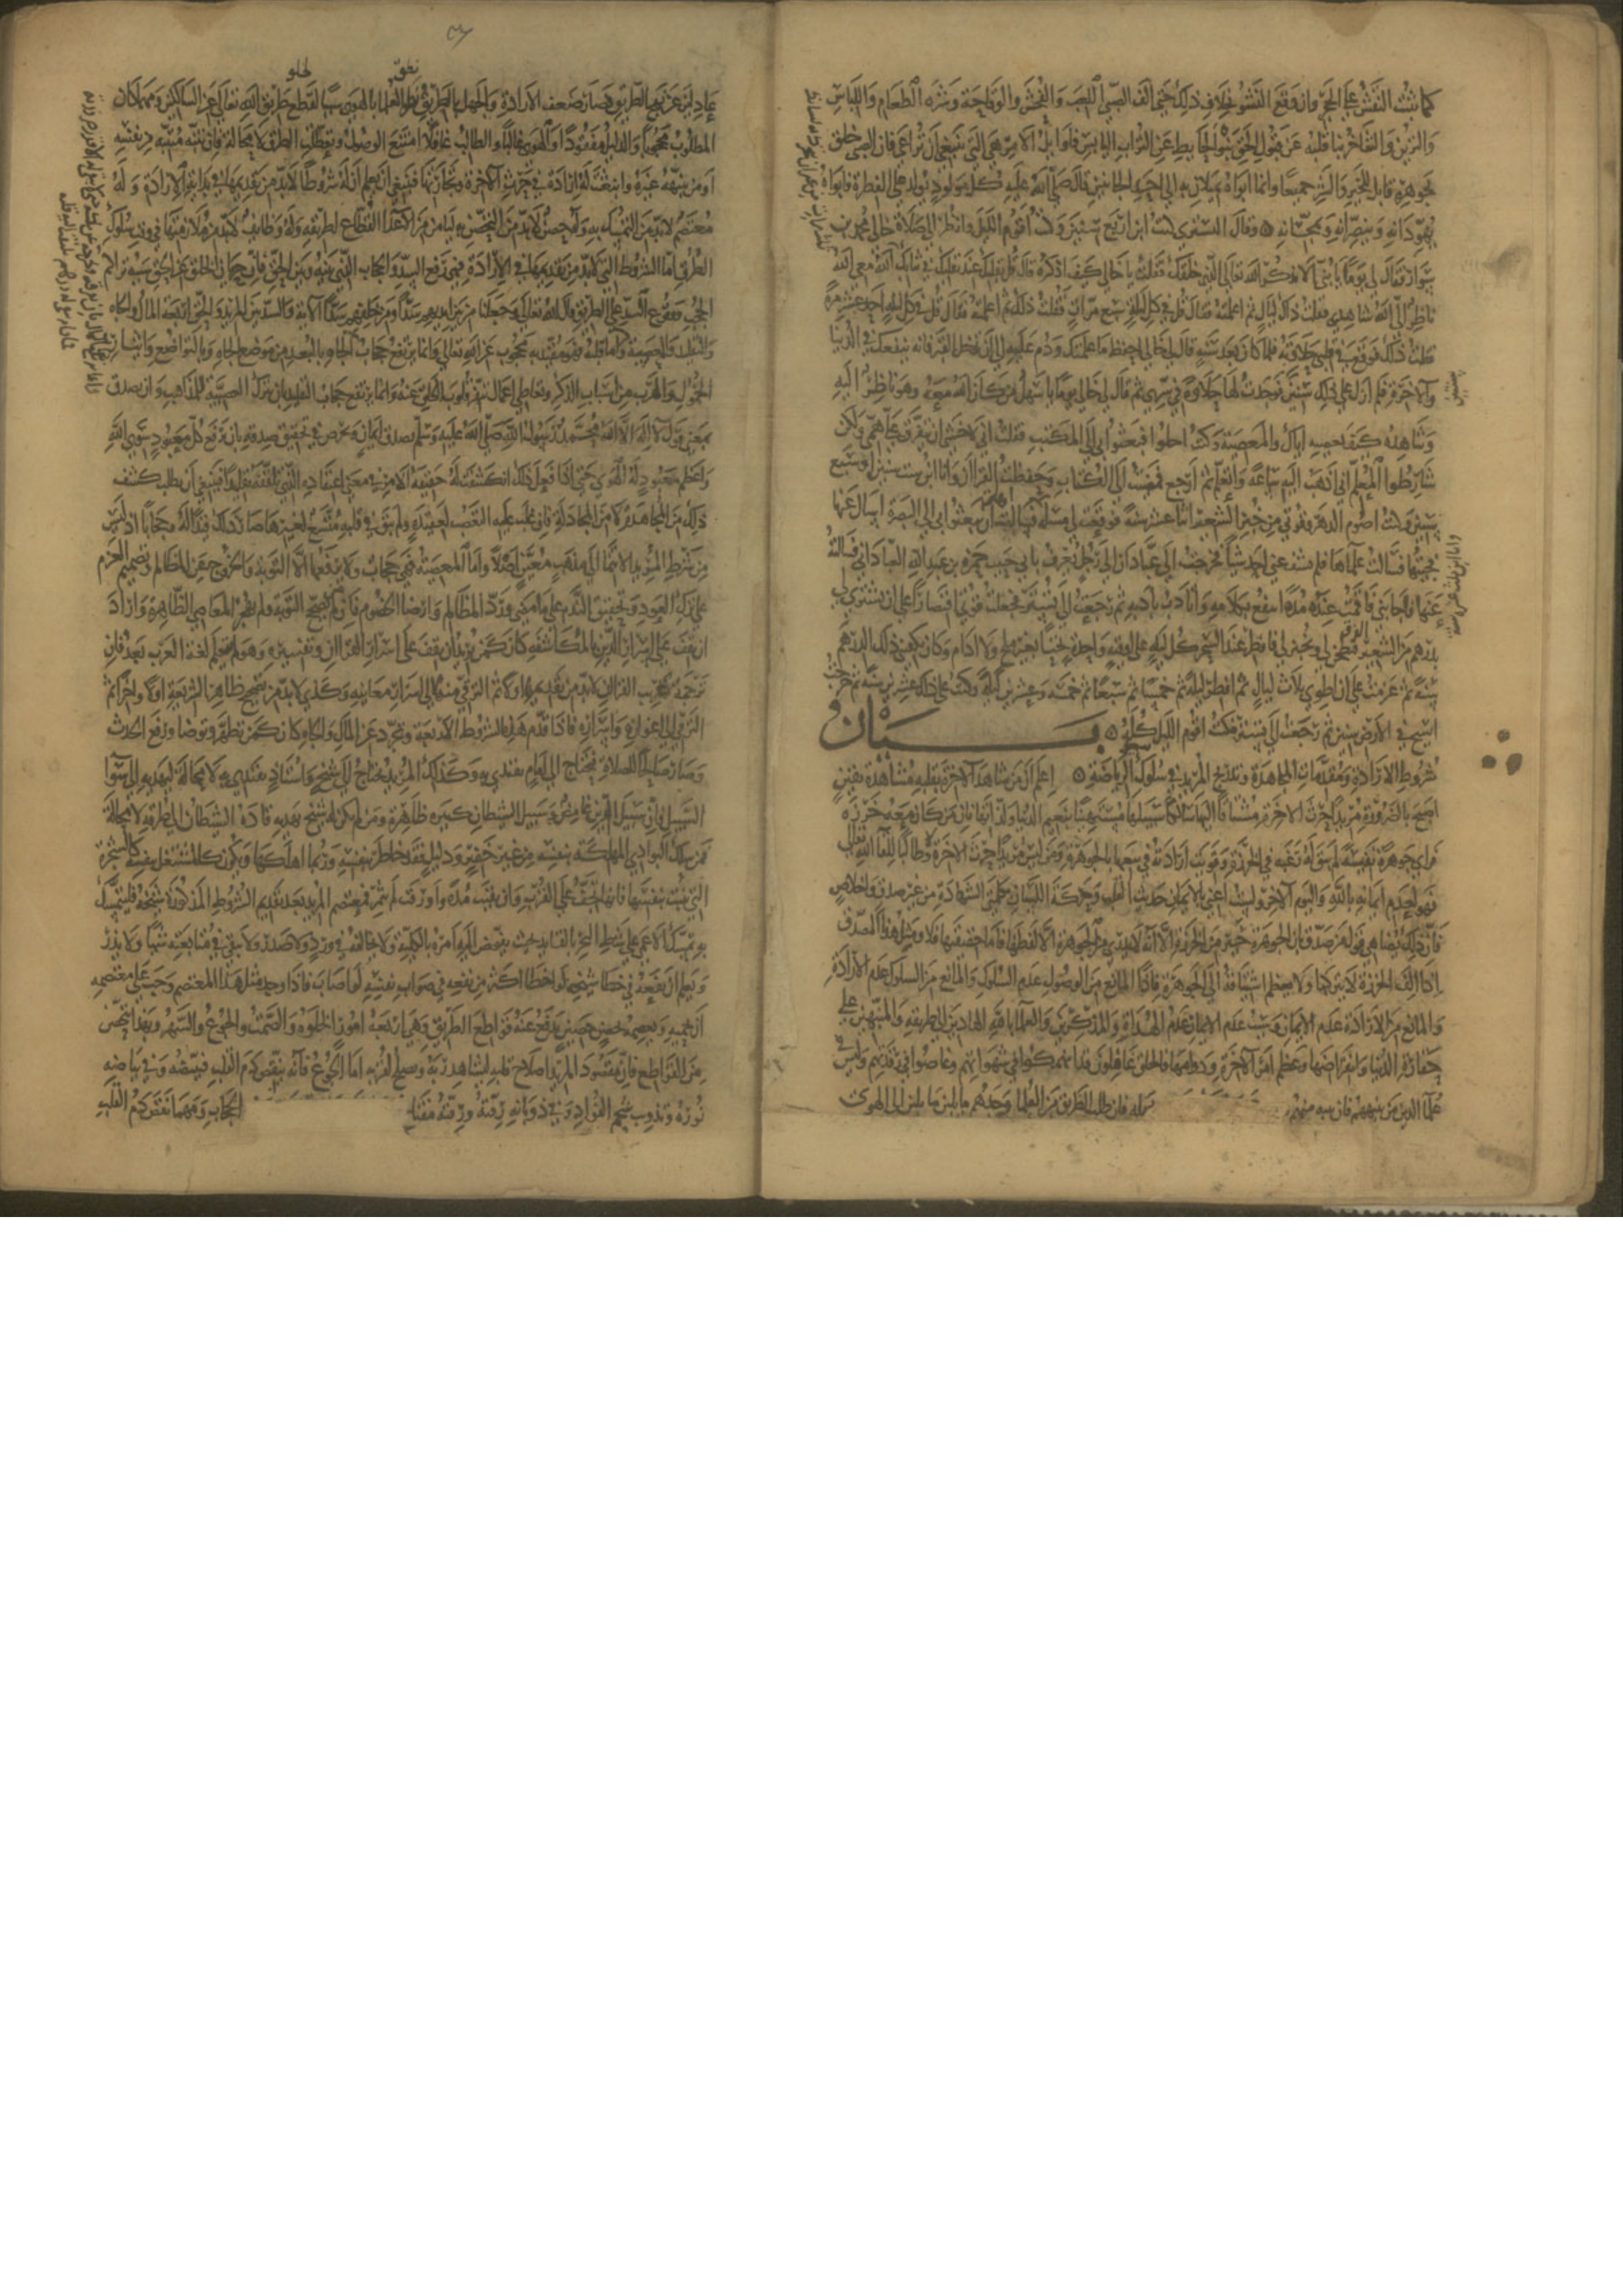 كما يثبت النقش على الحجر وان وقع النشو بخلاف ذلك حتى الف الصبى اللعب والفحش والوقاحة وشره الطعام واللباس
والتزين والتفاخر نبا قلبه عن قبول الحق نبو الحايط عن التراب اليابس فاوايل الامور هي التي ينبغى ان تراعى فان الصبى خلق
بجوهره قابلا للخير والشر جميعا وانما ابواه يميلان به الى احد الجانبين قال صلى الله عليه كل مولود يولد على الفطرة فابواه
يهودانه وينصرانه ويمجسانه وقال التسترى كنت ابن ثلاث سنين وكنت اقوم الليل وانظر الى صلاة خالى محمد بن
سوار فقال لى يوما يا بنى الا تذكر الله تعالى الذي خلقك فقلت يا خالى كيف اذكره قال قل بقلبك عند تقلبك في ثيابك الله معى الله
ناظر الى الله شاهدى فقلت ذلك ليال ثم اعلمته فقال قل في كل ليلة سبع مرات فقلت ذلك ثم اعلمته فقال قل في كل ليلة احد عشر مرة
فقلت ذلك فوقع في قلبى حلاوته فلما كان بعد سنة قال لى خالى احفظ ما علمتك ودم عليه الى ان تدخل القبر فانه ينفعك في الدنيا
والاخرة فلم ازل على ذلك سنين فوجدت لها حلاوة في سرى ثم قال لى خالى يوما يا سهل من كان الله معه وهو ناظر اليه
وشاهده كيف يعصيه اياك والمعصية وكنت اخلوا فبعثوا بى الى المكتب فقلت انى لاخشى ان يتفرق على همى ولكن
شارطوا المعلم انى اذهب اليه ساعة واتعلم ثم ارجع فمضيت الى الكتاب وحفظت القران وانا ابن ست سنين او سبع
سنين وكنت اصوم الدهر وقوتى من خبز الشعير اثنا عشر سنة فوقعت لى مسئلة فسالت ان يبعثوا بى الى البصرة اسال عنها
فجيتها فسالت علماها فلم يشف عنى احد شيا فخرجت الى عبادان الى رجل يعرف بابى حبيب حمزة بن عبد الله العبادانى فسالته
عنها فاجابنى فاقمت عنده مدة انتفع بكلامه واتادب بادبه ثم رجعت الى تستر فجعلت قوتى اقتصارا على ان يشترى لى
بدرهم من الشعير الفرق فيطحن لى ويخبز لى فافطر عند السحر كل ليلة على اوقية واحدة بحتا بغير ملح ولا ادام وكان يكفينى ذلك الدرهم
سنة ثم عزمت على ان اطوى ثلاث ليال ثم افطر ليلة ثم خمسا ثم سبعا ثم خمسة وعشرين ليلة وكنت على ذلك عشرين سنة ثم خرجت
اسيح في الارض سنين ثم رجعت الى تستر وكنت اقوم الليل كله بيان
شروط الارادة ومقدمات المجاهدة وتدريج المريد في سلوك الرياضة اعلم ان من شاهد الاخرة بقلبه مشاهدة يقين
اصبح بالضرورة مريدا حرث الاخرة مشتاقا اليها سالكا سبيلها مستهينا بنعيم الدنيا ولذاتها فان من كان معه خرزه
فراى جوهرة نفيسة لم يبق له رغبة في الخرزة وقويت ارادته في بيعها بالجوهرة ومن ليس مريدا حرث الاخرة ولا طالبا للقا الله تعالى
فهو لعدم ايمانه بالله واليوم الاخر ولست اعنى بالايمان حديث القلب وحركة اللسان بكلمتى الشهادة من غير صدق واخلاص
فان ذلك يضاهى قول من صدق بان الجوهرة خير من الخرزة الا انه لا يدرى من الجوهرة الا لفظها فاما حقيقتها فلا ومثل هذا المصدق
اذا الف الخرزة لا يتركها ولا يعظم اشتياقه الى الجوهرة فاذا المانع من الوصول عدم السلوك والمانع من السلوك عدم الارادة
والمانع من الارادة عدم الايمان وسبب عدم الايمان عدم الهداة والمذكرين والعلما بالله الهادين الى طريقه والمنبهين على
حقارة الدنيا وانقراضها وعظم امر الاخرة ودوامها فالخلق غافلون قد انهمكوا في شهواتهم وغاصوا في رقدتهم وليس في
علما الدين من ينبههم فان تنبه منهم فان طلب الطريق من العلما وجدهم مايلين الى الهوى
عادلين عن نهج الطريق فصار ضعف الارادة والجهل بالطريق ونطق العلما بالهوى سببا لقطع طريق الله تعالى عن السالكين ومهما كان
المطلوب محجوبا والدليل مفقودا والهوى غالبا والطالب غافلا امتنع الوصول وتعطلت الطرق لا محالة فان تنبه متنبه من نفسه
او من تنبيه غيره وانبعثت له ارادة في حرث الاخرة وتجارتها فينبغى ان يعلم ان له شروطا لا بد من تقديمها في بداية الارادة وله
معتصم لا بد من التمسك به وله حصن لا بد من التحصن به ليامن من الاعدا القطاع لطريقه وله وظايف لا بد من ملازمتها في وقت سلوك
الطرق اما الشروط التي لا بد من تقديمها في الارادة فهى رفع السد والحجاب الذي بينه وبين الحق فان حرمان الخلق عن الحق سببه تراكم
الحجب ووقوع السد على الطريق قال الله تعالى وجعلنا من بين ايديهم سدا ومن خلفهم سدا الاية والسد بين المريد وبين الحق اربعة المال والجاه
والتقليد والمعصية
الخمول والهرب من اسباب الذكر وتعاطى اعمال تنفر قلوب الخلق عنه وانما يرتفع حجاب التقليد بان يترك العصبية للمذاهب وان يصدق
بمعنى قول لا اله الا الله محمد رسول الله صلى الله عليه وسلم تصديق ايمان ويحرص في تحقيق صدقه بان يرفع كل معبود سوى الله
واعظم معبود له الهوى حتى اذا فعل ذلك انكشفت له حقيقة الامر في معنى اعتقاده الذي تلقفه تقليدا فينبغى ان يطلب كشف
ذلك من المجاهدة لا من المجادلة فان غلب عليه التعصب لعقيدة ولم يبق في قلبه متسع لغيرها صار ذلك قيدا له وحجابا اذ ليس
من شرط المريد الانتما الى مذهب معين اصلا واما المعصية فهى حجاب ولا يرفعها الا التوبة والخروج من المظالم وتصميم العزم
على ترك العود وتحقيق الندم على ما مضى ورد المظالم وارضا الخصوم فان من لم يصحح التوبة ولم يهجر المعاصى الظاهرة واراد
ان يقف على اسرار الدين بالمكاشفة كان كمن يريد ان يقف على اسرار القران وتفسيره وهو لم يتعلم لغة العرب بعد فان
ترجمة عربية القران لا بد من تقديمها اولا ثم الترقى منها الى اسرار معانيه وكذى لا بد من تصحيح ظاهر الشريعة اولا واخرا ثم
الترقى الى اغوارها واسرارها فاذا قدم هذه الشروط الاربعة وتجرد عن المال والجاه كان كمن تطهر وتوضا ورفع الحدث
وصار صالحا للصلاة فيحتاج الى امام يقتدى به وكذلك المريد يحتاج الى شيخ واستاذ يقتدى به لا محالة ليهديه الى سوا
السبيل فان سبيل الدين غامض وسبيل الشيطان كثيرة ظاهرة ومن لم يكن له شيخ يهديه قاده الشيطان الى طرقه لا محالة
فمن سلك البوادى المهلكة بنفسه من غير خفير ودليل فقد خاطر بنفسه وربما اهلكها ويكون كالمستقل بنفسه كالشجرة
التي تنبت بنفسها فانها تجف على القرب وان بقيت مدة واورقت لم تثمر فمعتصم المريد بعد تقديم الشروط المذكورة شيخه فليتمسك
به تمسك الاعمى على شط البحر بالقايد بحيث يفوض اليه امره بالكلية ولا يخالفه في ورد ولا صدر ولا يبقى في متابعته شيا ولا يذر
وليعلم ان نفعه في خطا شيخه لو اخطا اكثر من نفعه في صواب نفسه لو اصاب فاذا وجد مثل هذا المعتصم وجب على معتصمه
ان يحميه ويعصمه بحصن حصين يدفع عنه قواطع الطريق وهى اربعة امور الخلوة والصمت والجوع والسهر وبهذا تحصن
من القواطع فان مقصود المريد اصلاح قلبه ليشاهد ربه ويصلح لقربه اما الجوع فانه ينقص دم القلب فيبيضه وفى بياضه
نوره ويذوب شحم الفواد وفى ذوبانه رقته ورقته مفتاح الحجاب ومهما نقص دم القلب